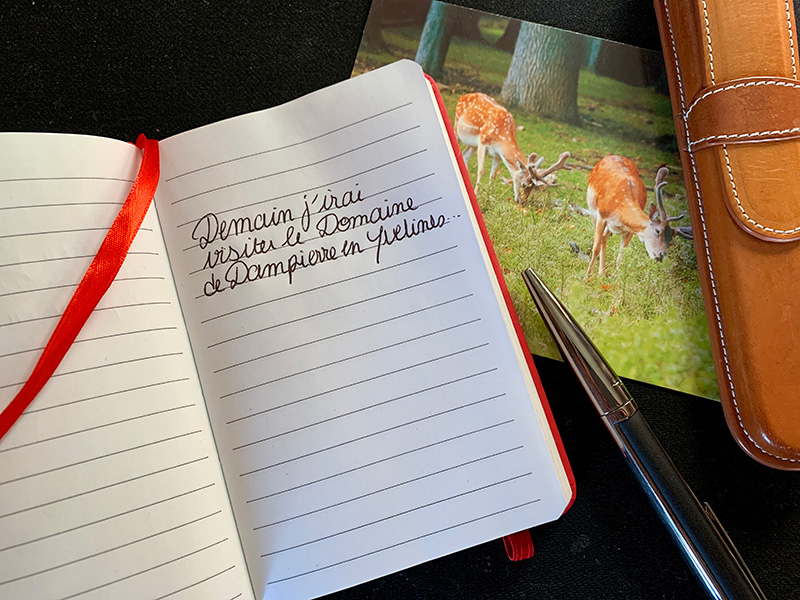 Demain j'irai
visiter le Domaine
de Dampierre en Yvelines...